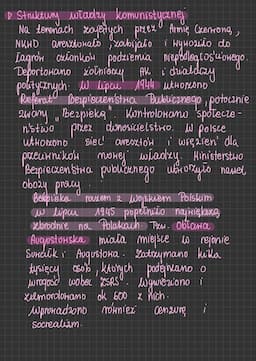 Struktury władzy komunistycznej
Na terenach zajętych przez Armię Czerwoną,
NKWD aresztowało, zabijało i wywoziło do
łagrów członków podziemia niepodległościowego.
Deportowano żołnierzy AK i działaczy
politycznych. W lipcu 1944 utworzono
Referat Bezpieczeństwa Publicznego, potocznie
zwany "Bezpieką". Kontrolowano społecze-
ństwo przez donosicielstwo. W polsce
utworzono sieć aresztów i więzień dla
przeciwników nowej władzy. Ministerstwo
Bezpieczeństwa publicznego utworzyło nawet
obozy pracy.
Bezpieka razem z Wojskiem Polskim
w lipcu 1945 popełniło największą
zbrodnie na Polakach. Tzw. Obława
Augustowska miała miejsce w rejonie
Suwałk i Augustowa. Zatrzymano kilka
tysięcy osób, których podejrzano o
wrogość wobec ZSRS. Wywieziono i
zamordowano ok 600 z nich.
Wprowadzono również cenzurę i
socrealizm.